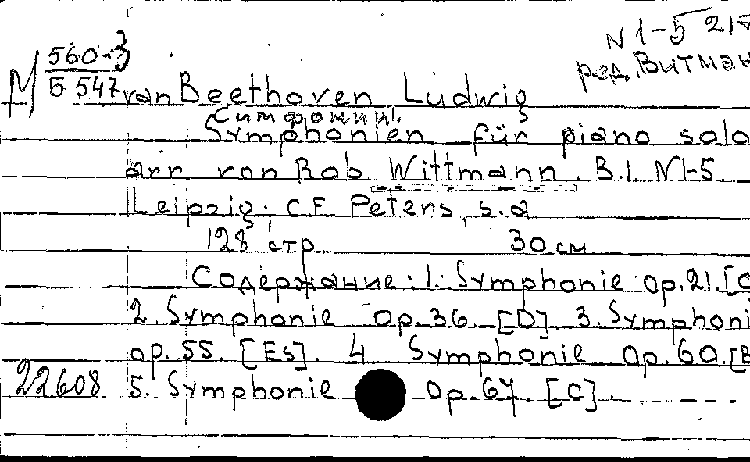 N 1-5
ред. Витман
М 560-3
Б 547
van Beethoven Ludwig
Симфонии.
Symphonien für piano solo
arr von Rob. Wittmann. B.I. N1-5
Leipzig. C.F. Peters, s.a
128 стр. 30 см
Содержание: 1. Symphonie op.21.
2. Symphonie op.36. [D] 3. Symphoni
op.55. [Es]. 4 Symphonie Op.60.
22608 5. Symphonie Op.67. [C]